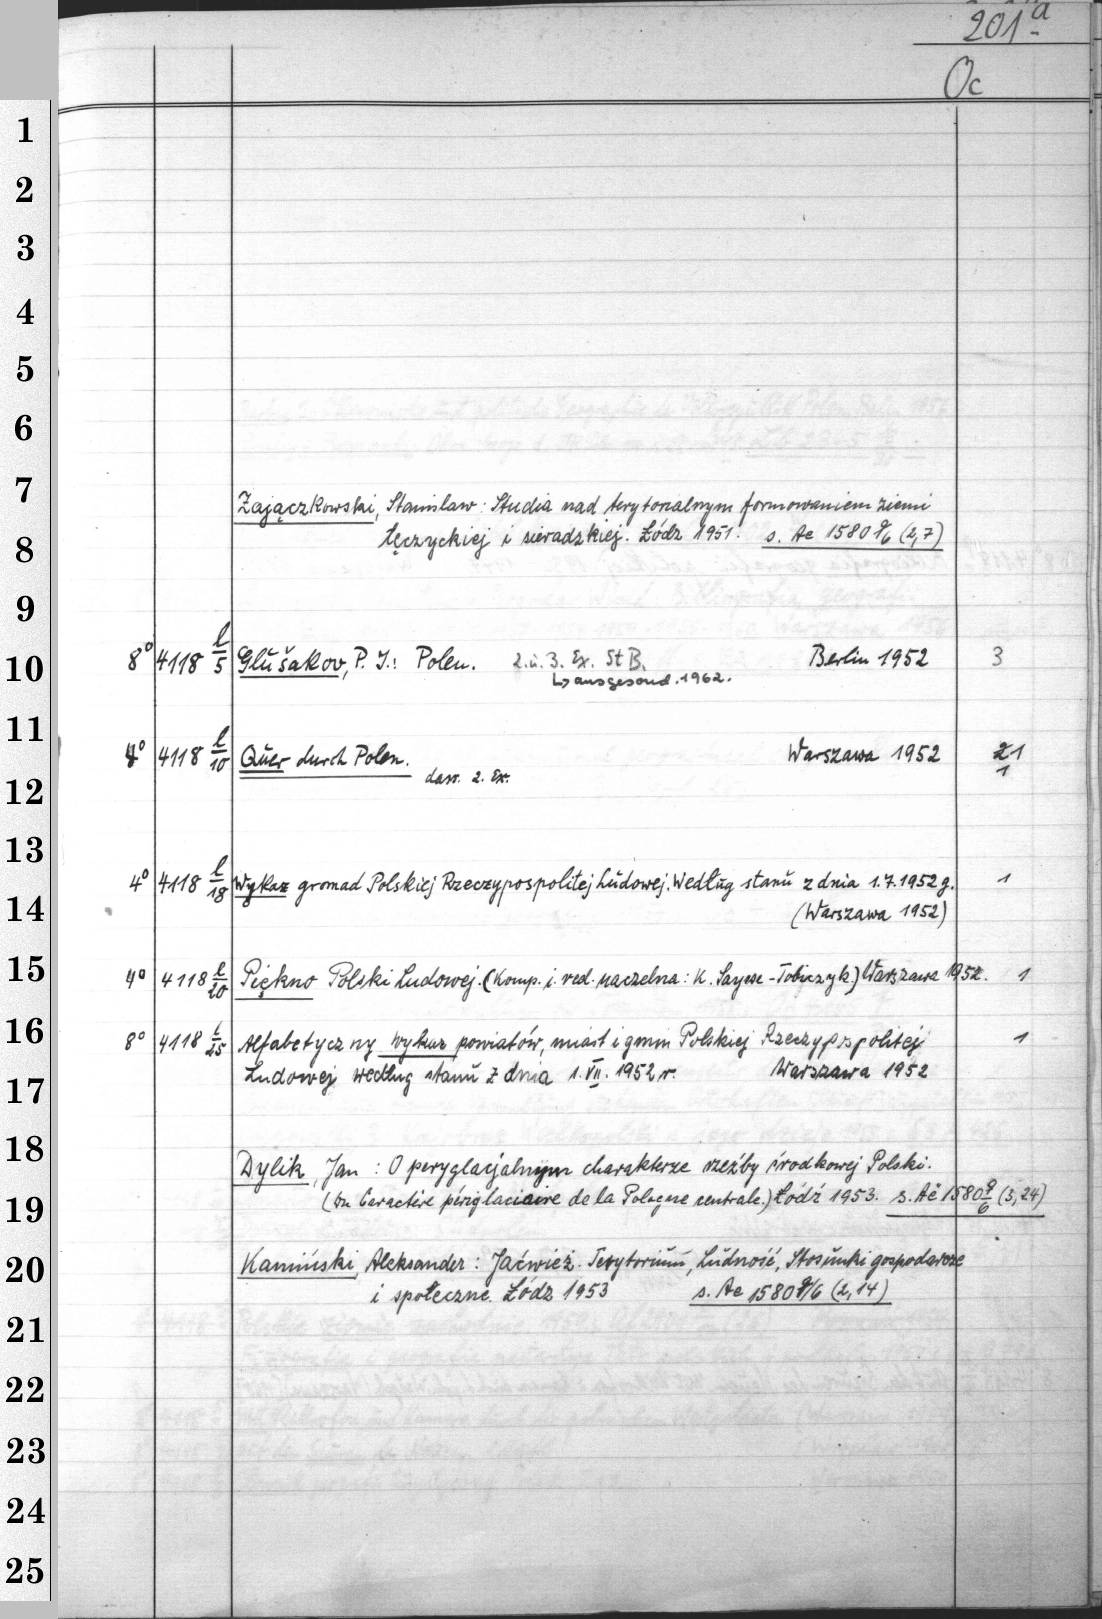 201a
Oc
1
2
3
4
5
6
7
Zajączkowski, Stanislaw: Studia nad terytorialnym formowaniem ziemi
8
łęczyckiej i sieradzkiej. Łódz 1951. s. Ae 1580 q/6 (2,7)
9
10
8° 4118 l/5 Glušakov, P. I.: Polen. 2. u. 3. Ex. St B. Berlin 1952 3
↳ ausgesond. 1962.
11
4° 4118 l/10 Quer durch Polen. Warszawa 1952 21
dass. 2. Ex. 1
12
13
14
4° 4118 l/18 Wykaz gromad Polskiej Rzeczypospolitej Ludowej. Według stanu z dnia 1.7.1952 g. 1
(Warszawa 1952)
15
4° 4118 l/20 Piękno Polski Ludowej. (Komp. i. red. naczelna: K. -Tobiczyk) Warszawa 1952. 1
16
8° 4118 l/25 Alfabetyczny Wykaz powiatów, miast i gmin Polskiej Rzeczypospolitej 1
17
Ludowej według stanu z dnia 1. VII. 1952 r. Warszawa 1952
18
Dylik, Jan: O peryglacjalnym charakterze rzeźby środkowej Polski.
19
(Du Caractère périglaciaire de la Pologne centrale.) Łódź 1953. s. Ae 1580 q/6 (3,24)
20
Kamiński, Aleksander: Jaćwież. Terytorium, Ludność, Stosunki gospodarcze
i społeczne. Łódz 1953 s. Ae 1580 q/6 (2,14)
21
22
23
24
25